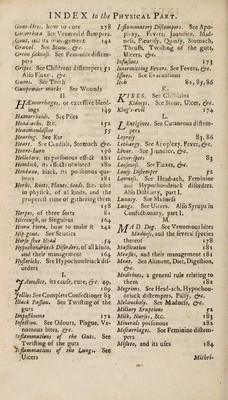 INDEX to the PHYSICAL PART.
Gout-lites, how to cure 278
Gonorrhœa See Venereal distempers.
Gout, and its management 142
Gravel See Stone &c.
Green sickness See Feminine distempers
Gripes See Childrens distempers 51
Also Fluxes, &c.
Gums See Teeth
Gunpowder marks See Wounds
H
Hæmorrhages, or excessive bleedings 149
Hæmorrhoids. See Piles
Head-achs, &c. 152
Hearing. See Ear
Heart. See Cordials, Stomach &c.
Heart-burn 156
Hellebore, its poisonous effects 281
Hemlock, its effects obviated 281
Henbane, black, its poisonous qualities 281
Herbs, Roots, Plants, Seeds, &c. used in physick, of all kinds, and the properest time of gathering them 158
Herpes, of three sorts 81
Hiccough, or singultus 164
Hiera Picra, how to make it 242
Hip-gout. See Sciatica
Horse flies Head 54
Hypochondriack Disorders, of all kinds, and their management 164
Hystericks. See Hypochondriack disorders
I.
Jaundice, its cause, cure, &c. 49, 169
Jellies See Complete Confectioner 83
Iliack Passion. See Twisting of the guts
Imposthume 172
Infection. See Odours, Plague, Venomous bites, &c.
Inflammations of the Guts. See Twisting of the guts
Inflammations of the Lungs. See Ulcers
Inflammatory Distempers. See Apoplexy, Fevers, Jaundice, Madness, Pleurisy, Quinsy, Stomach, Thrush, Twisting of the guts, Ulcers, &c.
Infusions 173
Intermitting Fevers. See Fevers, &c.
Issues. See Evacuations
Itch 82, 85, 86
K.
KIBES. See Chilblains
Kidneys. See Stone, Ulcer, &c.
King's-evil 174
L.
See Cutaneous distempers
Leprosy 83, 86
Lethargy. See Apoplexy, Fever, &c.
Liver. See Jaundice, &c.
Liver-spots 83
Looseness. See Fluxes, &c.
Lousy Distemper 52
Lowness. See Head-ach, Feminine and Hypochondriack disorders. Also Distillery, part I.
Lunacy. See Madness
Lungs. See Ulcers. Also Syrups in Confectionary, part I.
M.
MAD Dog. See Venomous bites
Madness, and the several species thereof 178
Mastication 181
Measles, and their management 181
Meat. See Aliment, Diet, Digestion, &c.
Medicines, a general rule relating to them 182
Megrims. See Head-ach, Hypochondriack distempers, Palsy, &c.
Melancholy. See Madness, &c.
Miliary Eruptions 52
Milk, Nurses, &c. 183
Minerals poisonous 282
Miscarriages. See Feminine distempers
Misletoe, and its uses 184
Michel-